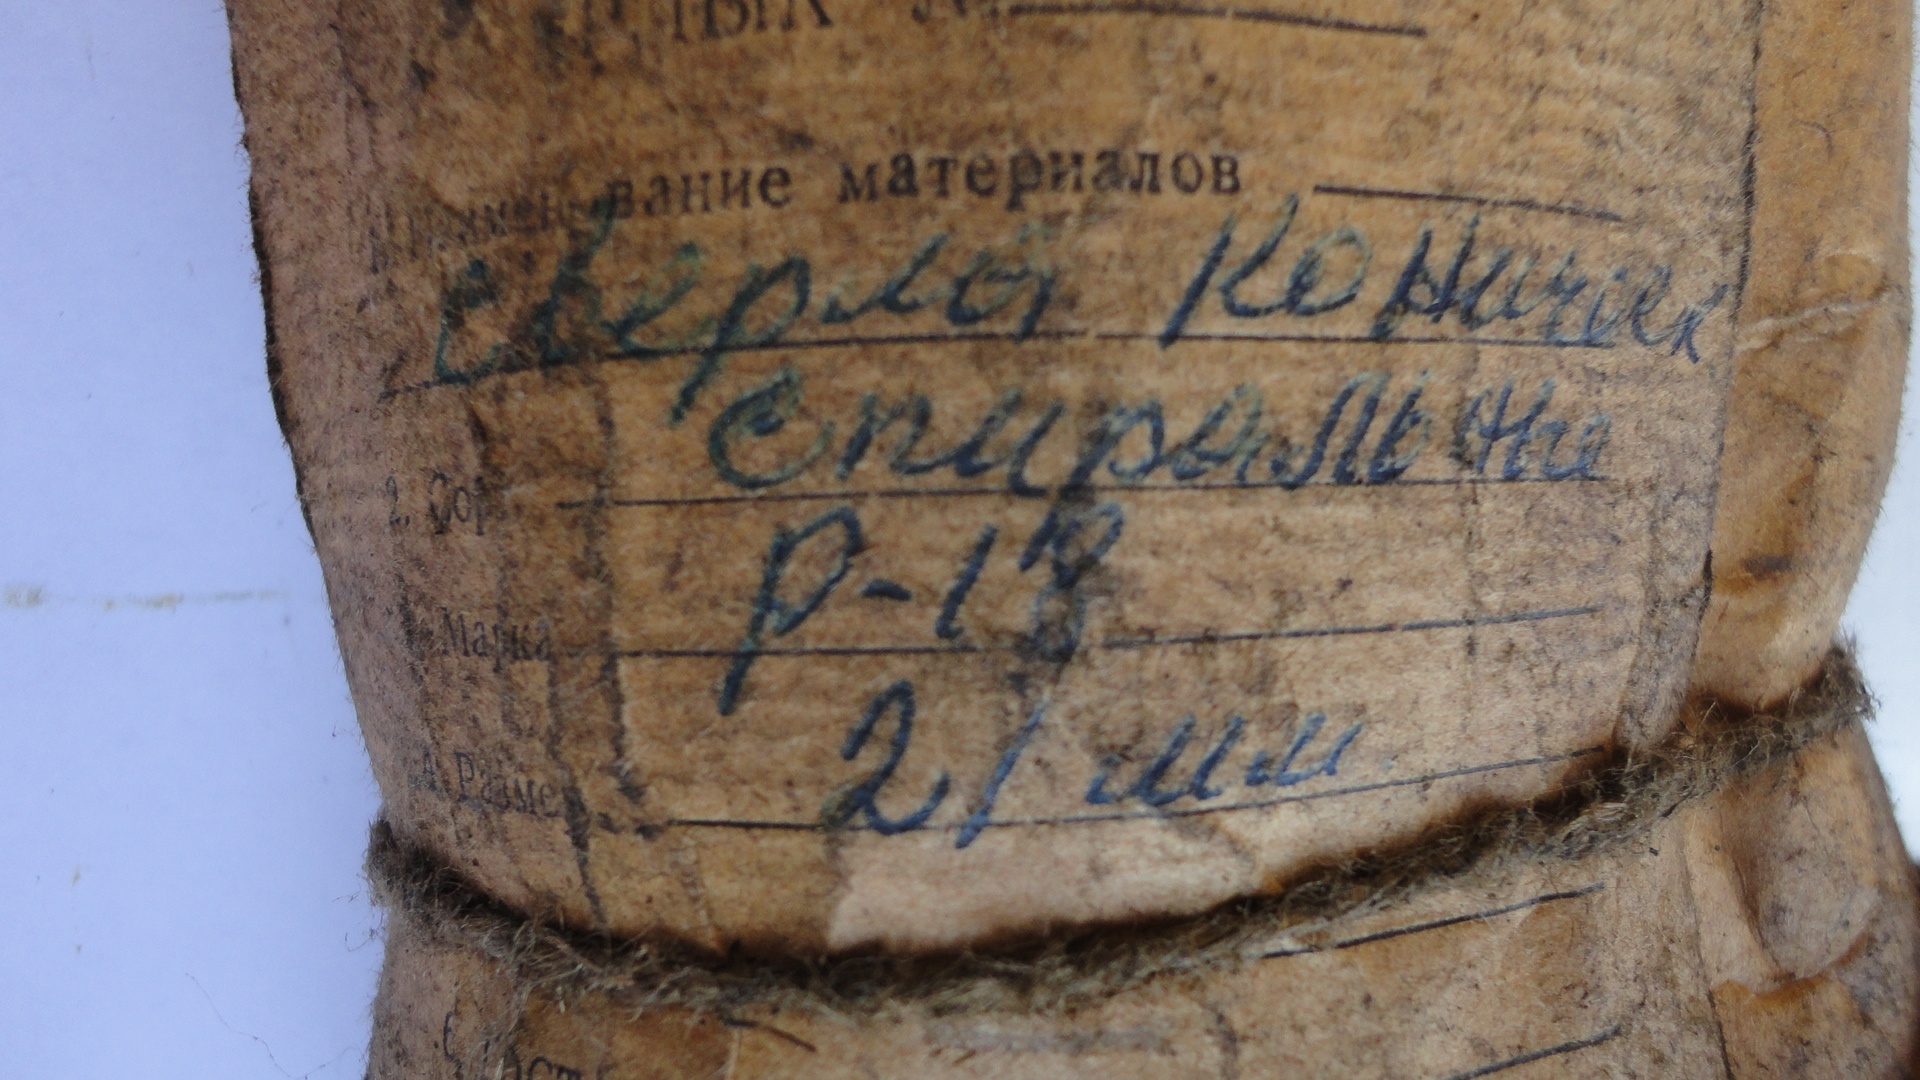 вание материалов
сверла коническ
спиральные
2. Сор
Р-18
Марка
21 мм.
Разме